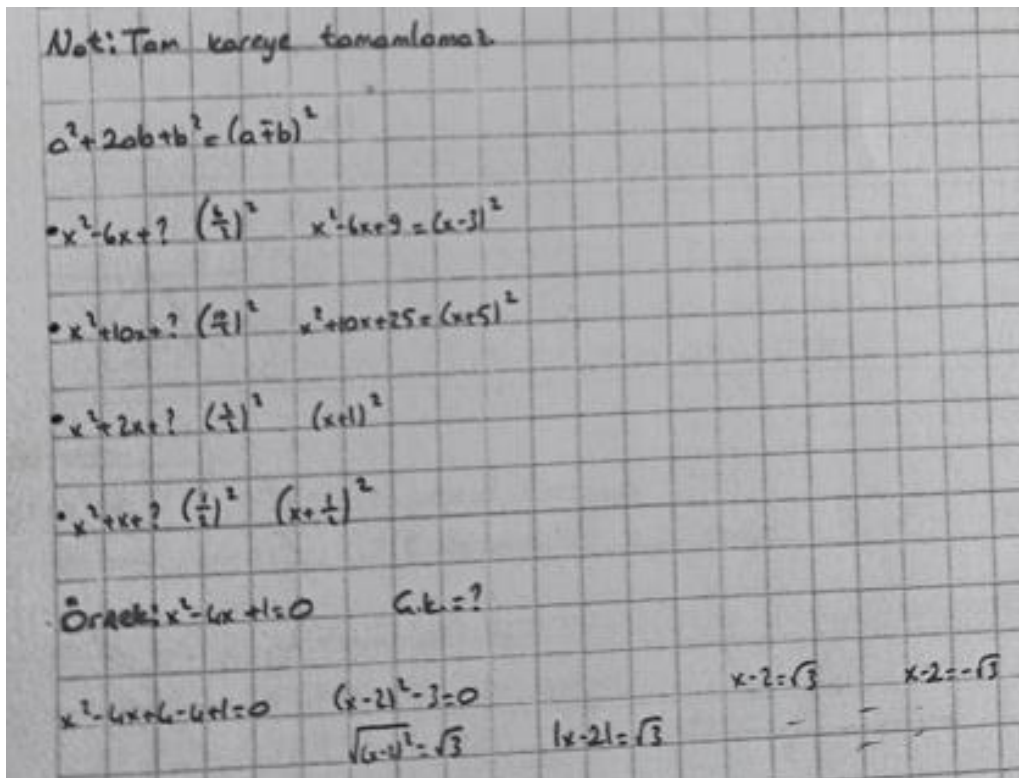 Not: Tam kareye tamamlama
a²+2ab+b²=(a∓b)²
•x²-6x+? (6/2)² x²-6x+9=(x-3)²
•x²+10x+? (10/2)² x²+10x+25=(x+5)²
•x²+2x+? (2/2)² (x+1)²
•x²+x+? (1/2)² (x+1/2)²
Örnek: x²-4x+1=0 Ç.k.=?
x²-4x+4-4+1=0 (x-2)²-3=0 x-2=√3 x-2=-√3
√(x-2)²=√3 |x-2|=√3